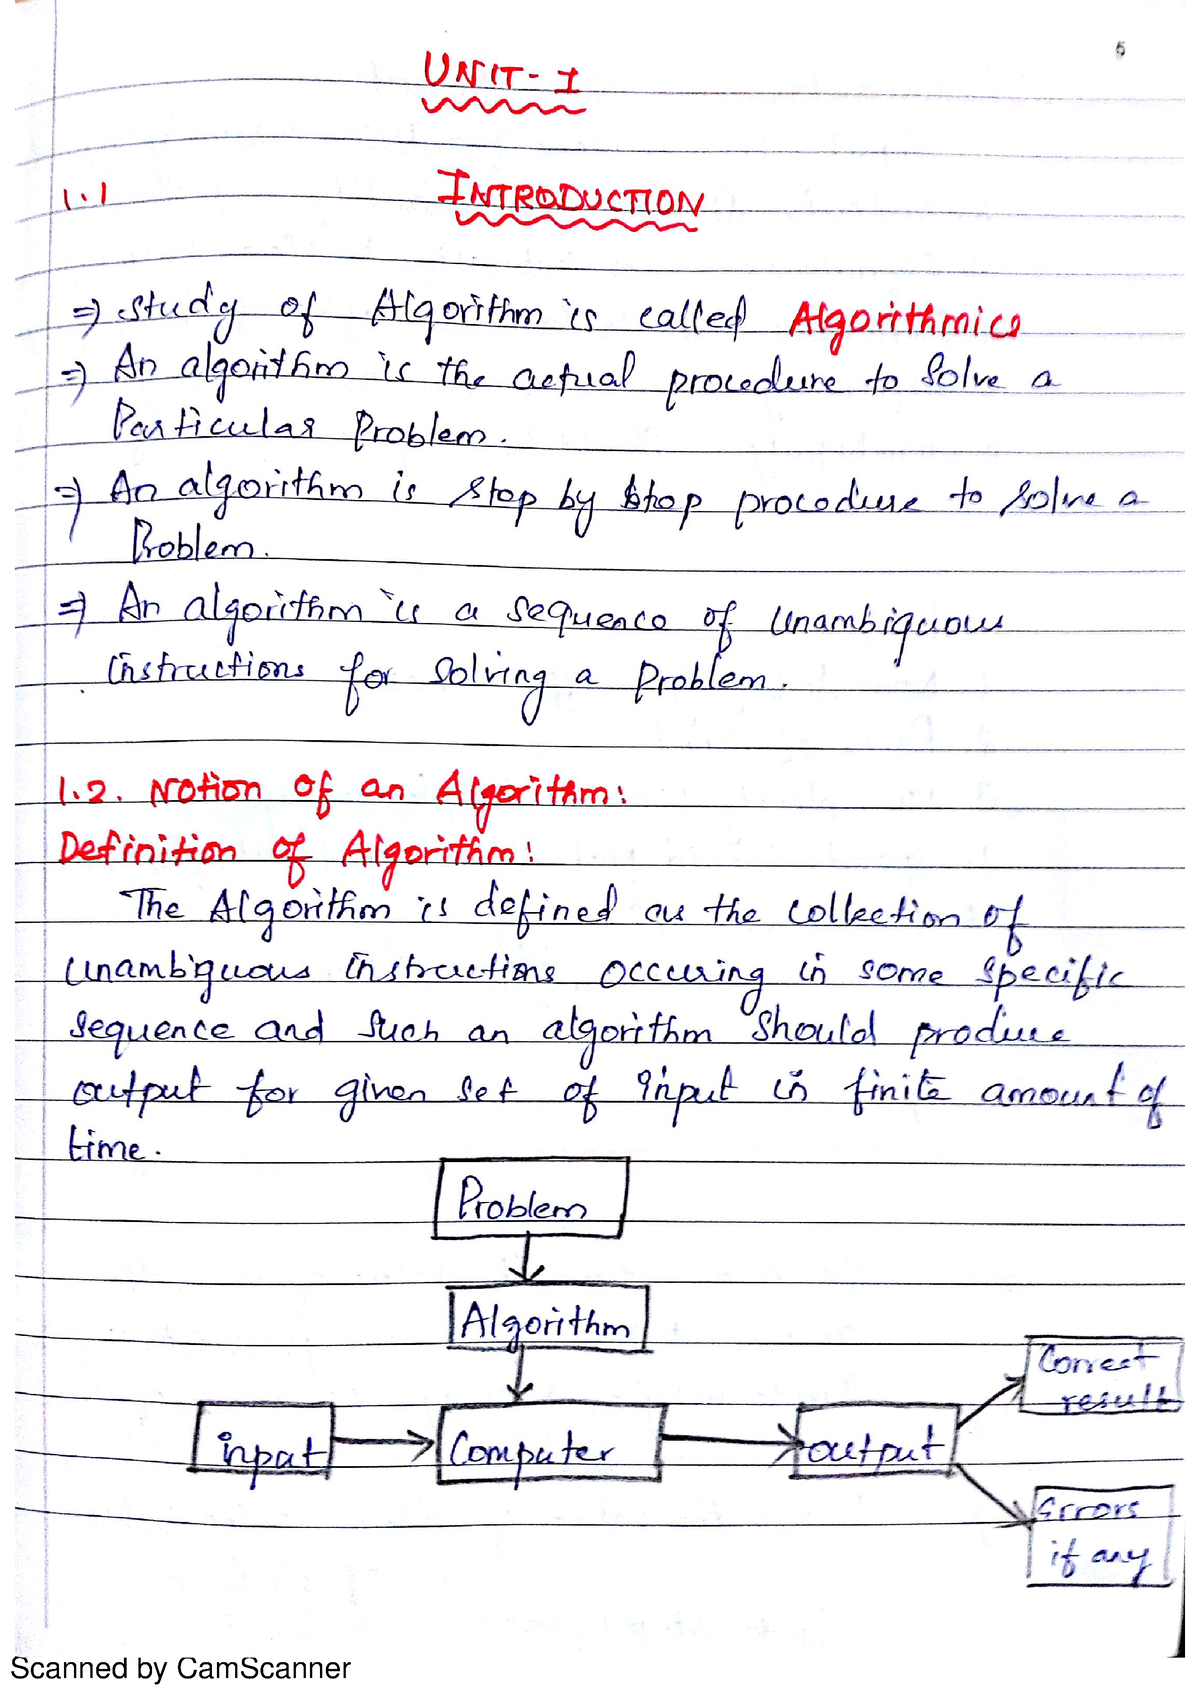 5
UNIT-I
1.1 INTRODUCTION
⇒ study of Algorithm is called Algorithmics
⇒ An algorithm is the actual procedure to solve a
Particular Problem.
⇒ An algorithm is step by step procedure to solve a
Problem.
⇒ An algorithm is a sequence of unambiguous
instructions for solving a problem.
1.2. Notion of an Algorithm:
Definition of Algorithm:
The Algorithm is defined as the collection of
unambiguous instructions occuring in some specific
sequence and such an algorithm should produce
output for given set of input in finite amount of
time.
Problem
Algorithm
input
Computer
output
Correct
result
Errors
if any
Scanned by CamScanner